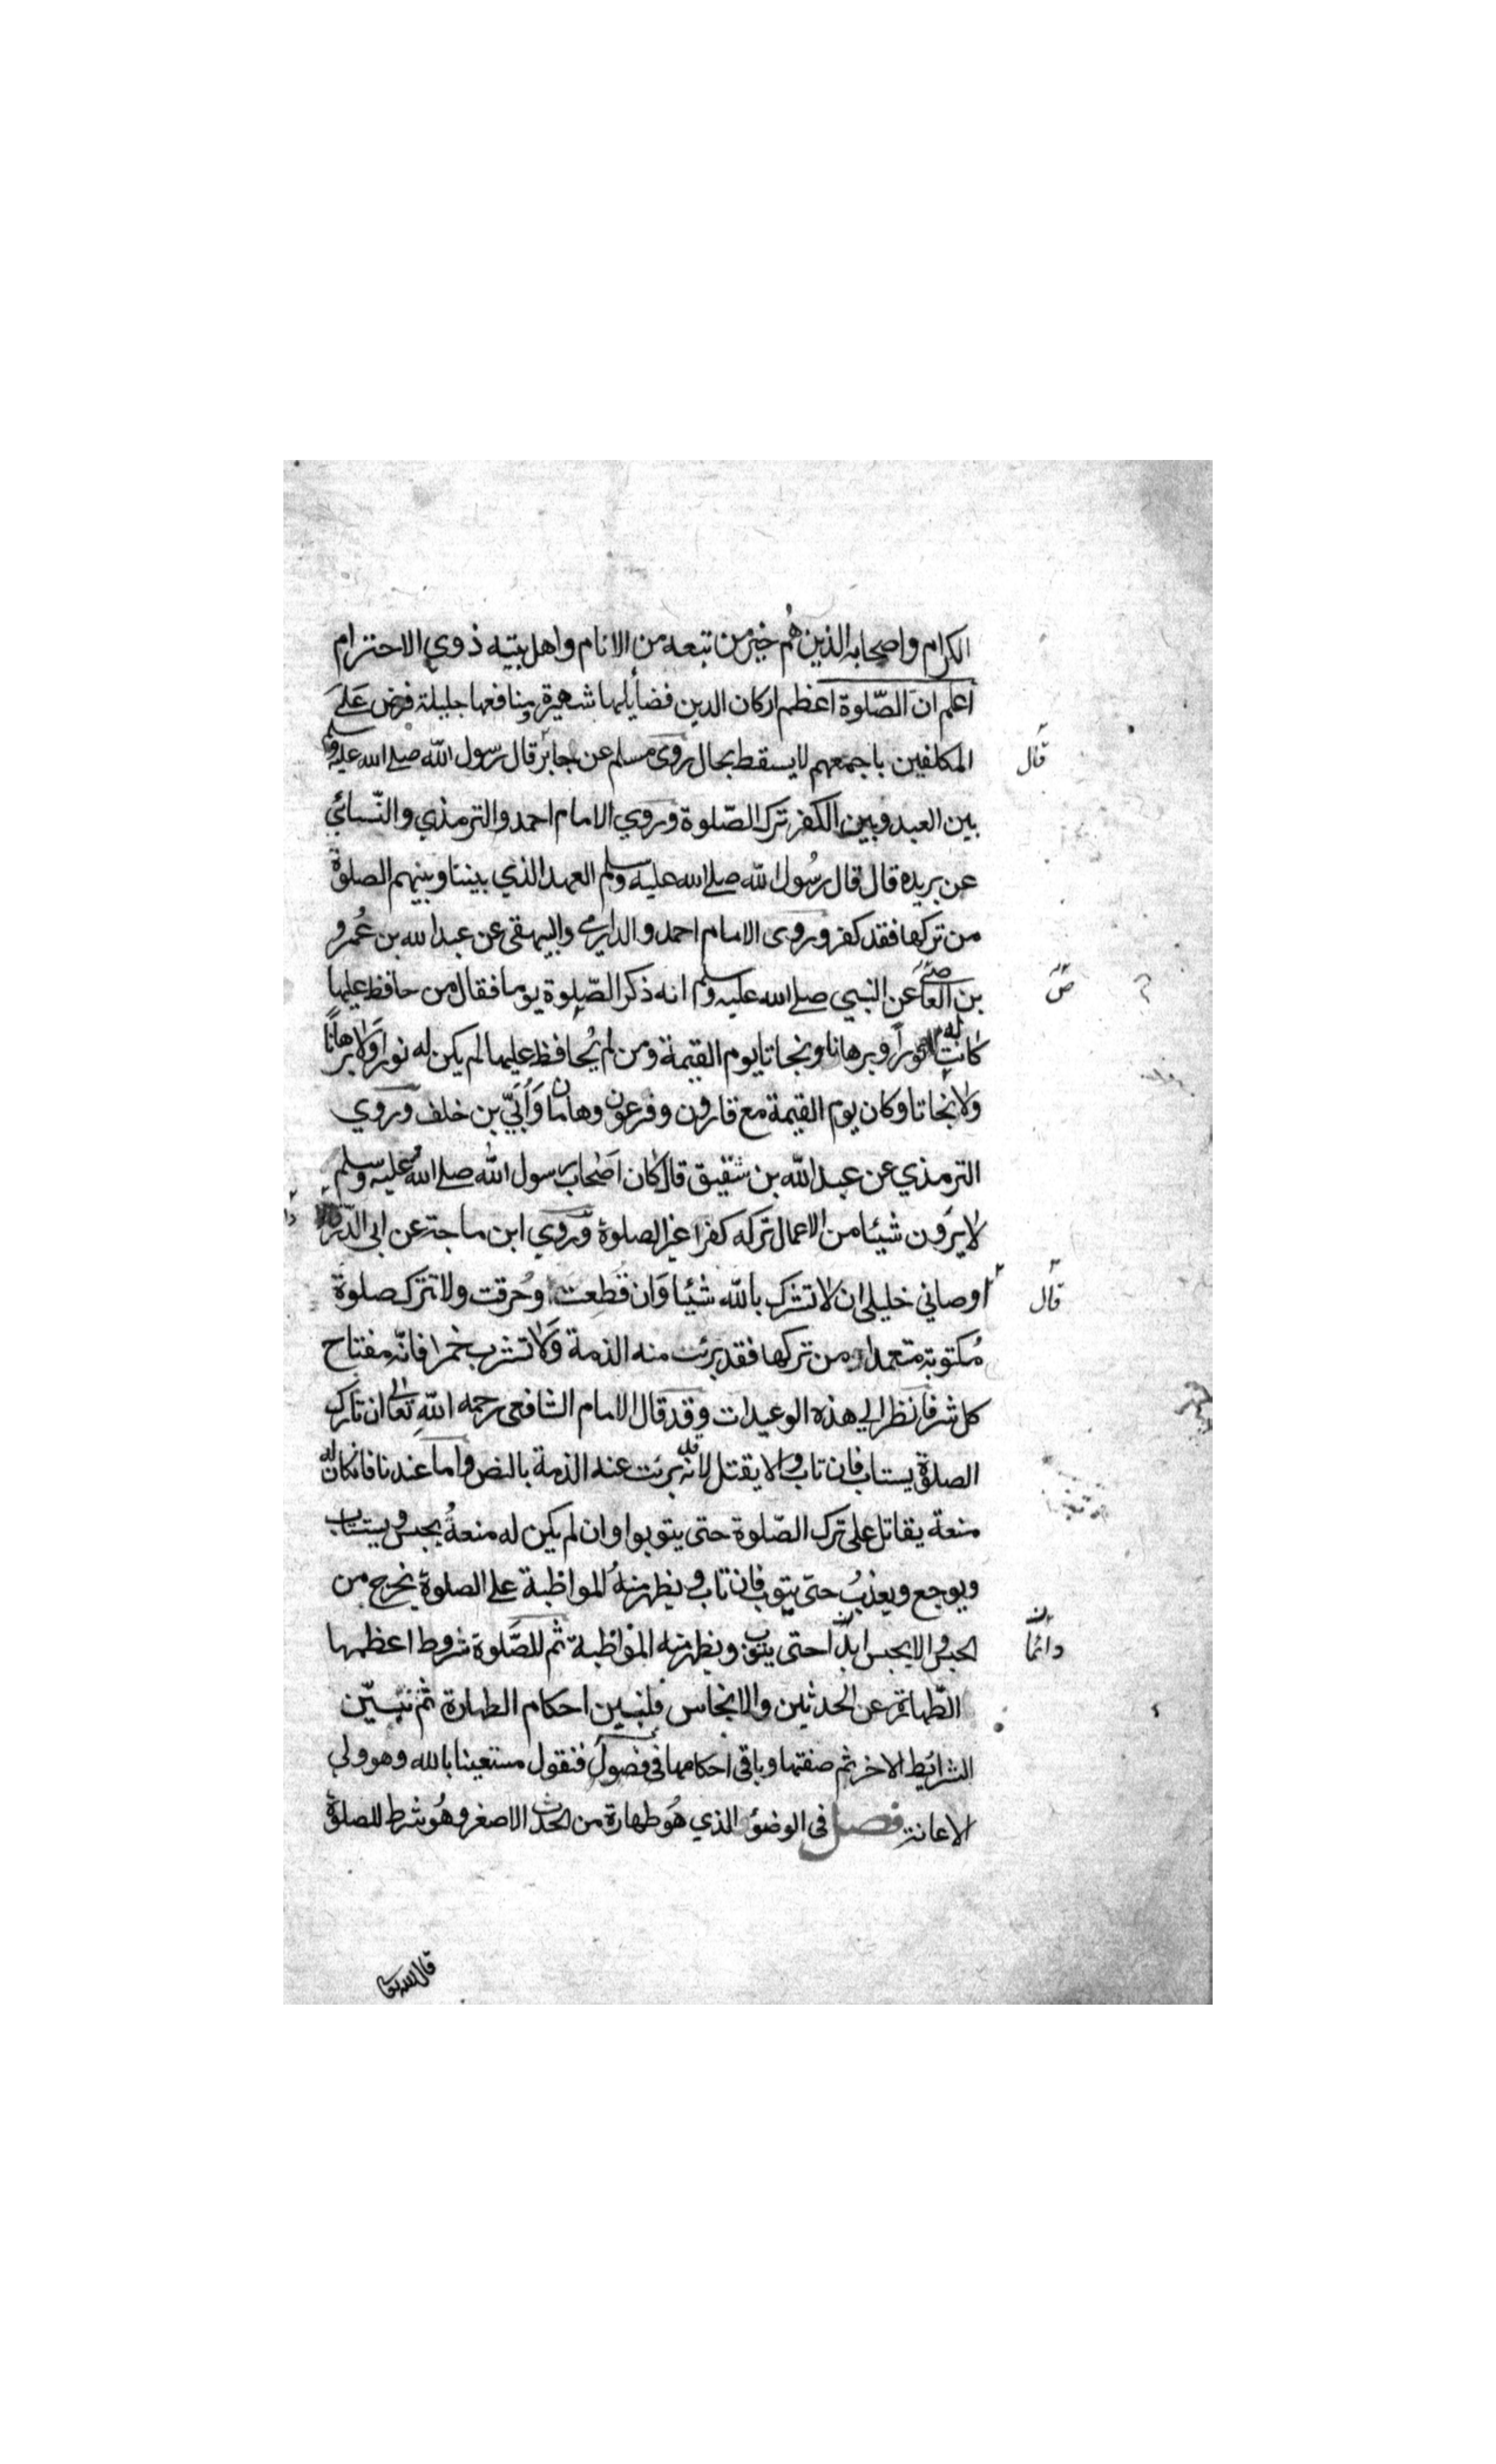 الكرام واصحابه الذين هُم خير من تبعه من الانام واهل بيته ذوي الاحترام
اعلم ان الصّلوة اعظم اركان الدين فضايلها شهيرة ومنافعها جليلة فرض على
المكلفين باجمعهم لا يسقط بحال روى مسلم عن جابر قال رسول الله صلے الله عليه وسلم
قال
بين العبد وبين الكفر ترك الصّلوة وروي الامام احمد والترمذي والنّسائي
عن بريده قال قال رسُول الله صلے الله عليه وسلم العهد الذي بيننا وبينهم الصلوة
من تركها فقد كفر وروى الامام احمد والدارمي والبيهقى عن عبد الله بن عُمرو
بن العاص عن النبي صلے الله عليه وسلم انه ذكر الصّلوة يوما فقال من حافظ عليها
ص
كانت له نوراً وبرهانا ونجاتا يوم القيمة ومن لم يُحافظ عليها لم يكن له نورا ولا برهانًا
ولا نجاتا وكان يوم القيمة مع قارون وفرعون وهامان وَأُبَيّ بن خلف وروي
الترمذي عن عبد الله بن شقيق قال كان اصحاب رسول الله صلے الله عليه وسلم
لا يَرون شيئا من الاعمال تركه كفرا غير الصلوة وروي ابن ماجة عن ابى الدّرداء
اوصاني خليلى ان لا تشرك بالله شئيا وَان قُطعت وحُرقت ولا تترك صلوة
قال
مُكتوبة متعمدا من تركها فقد برئت منه الذمة وَلا تشرب خمرا فانّه مفتاح
كل شر فانظر الي هذه الوعيدات وقد قال الامام الشافعى رحمه الله تعالى ان تارك
الصلوة يستاب فان تاب والا يقتل لانه قد برئت عنه الذمة بالنص واما عندنا فان كان له
منعة يقاتل على ترك الصّلوة حتى يتوبوا وان لم يكن له منعةُ يحبس ويستتاب
ويوجع ويعذبُ حتى يتوب فان تاب ويظهر منهُ المواظبة على الصلوة يخرج من
الحبس والا يحبس ابدًا حتى يتوب ويظهر منه المواظبة ثم للصَّلوة شروط اعظمها
دائمًا
الطّهارة عن الحدثين والانجاس فلنبين احكام الطهارة ثم نبيّن
الشرائط الاخر ثم صفتها وباقى احكامها فى فصول فنقول مستعينا بالله وهو ولي
الاعانة فصل فى الوضؤ الذي هُو طهارة من الحدث الاصغر وهُو شرط للصلوة
قال الله تعا